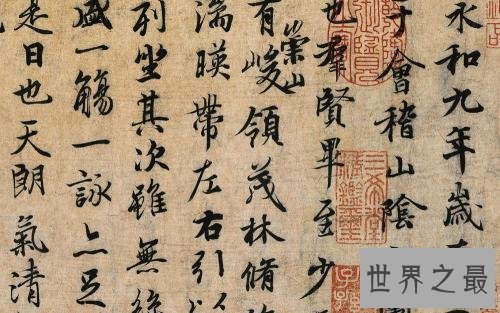 永和九年歲
于會稽山陰
也羣賢畢至少
有崇山峻領茂林脩
湍暎帶左右引以
列坐其次雖無絲
盛一觴一詠亦足
是日也天朗氣清
三希堂精鑑璽
世界之最